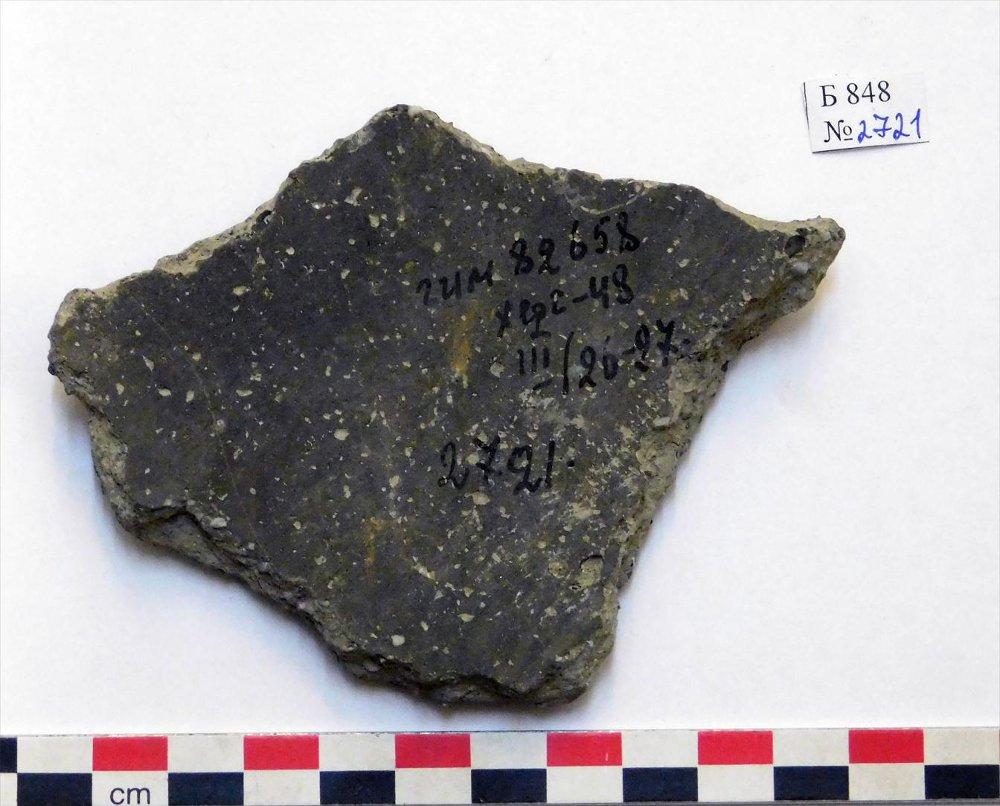 Б 848
№2721
гим 82658
херс-48
III/26-27.
2721.
cm